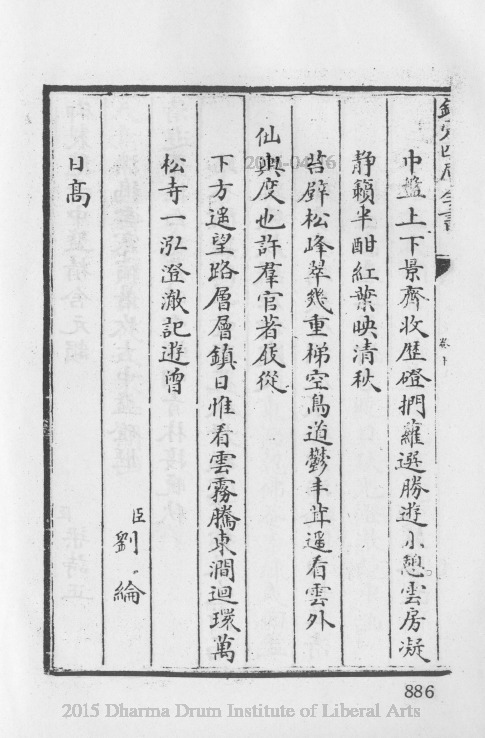 欽定四庫全書
中盤上下景齊收歴磴捫蘿選勝遊小憩雲房凝
静籟半酣紅葉映清秋
苔壁松峰翠幾重梯空鳥道鬱丰茸遥看雲外
仙輿度也許羣官着屐從
下方遥望路層層鎮日惟看雲霧騰東澗迴環萬
松寺一泓澄澈記遊曾
臣劉綸
日髙
886
2015 Dharma Drum Institute of Liberal Arts